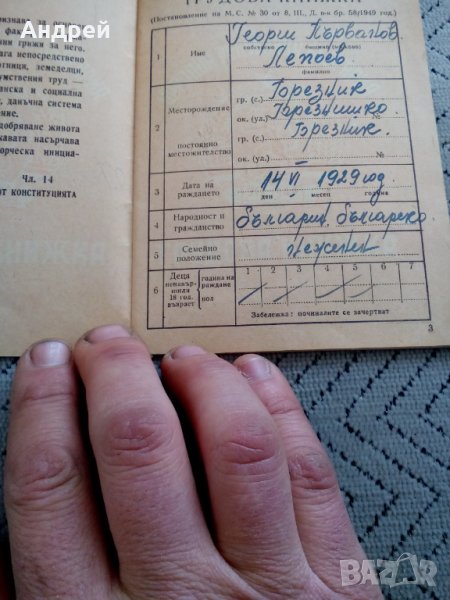 Андрей
фак
ни грижи за него.
ага непосредствено
отници, земеделци,
умствения труд —
анска и социална
, данъчна система
ение.
одобряване живота
жавата насърчава
орческа инициа-
Чл. 14
от КОНСТИТУЦИЯТА
ТРУДОВА КНИЖКА
(Постановление на М. С. № 30 от 8, III., Д. в-к бр. 58/1949 год.)
1 Име Георги Първанов
собствено бащино (мъжово)
фамилно
2 Месторождение гр (с.) Горезник
ок. (ул.) №
постоянно местожителство гр (с.) Горезник
ок. (ул.) №
3 Дата на раждането 14 VI 1929 год.
ден месец година
4 Народност и гражданство българин, българско
5 Семейно положение неженен
6 Деца ненавършили 18 год. възраст година на раждане пол 1 2 3 4 5 6 7
Забележка: починалите се зачертват
3
BAZAR